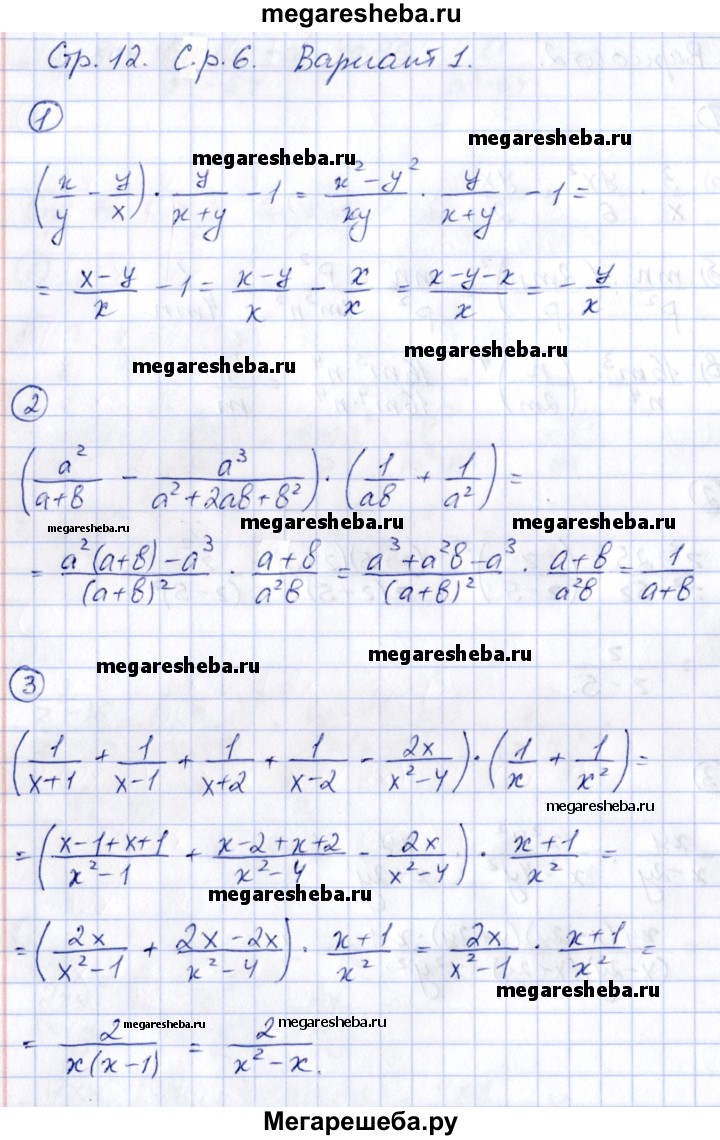 megaresheba.ru
Стр. 12. С.р. 6. Вариант 1.
1
megaresheba.ru
megaresheba.ru
(x/y - y/x) · y/(x+y) - 1 = (x² - y²)/(xy) · y/(x+y) - 1 =
= (x-y)/x - 1 = (x-y)/x - x/x = (x-y-x)/x = - y/x
megaresheba.ru
megaresheba.ru
2
(a²/(a+b) - a³/(a²+2ab+b²)) · (1/(ab) + 1/a²) =
megaresheba.ru megaresheba.ru megaresheba.ru
= (a²(a+b) - a³)/(a+b)² · (a+b)/(a²b) = (a³+a²b-a³)/(a+b)² · (a+b)/(a²b) = 1/(a+b)
megaresheba.ru
megaresheba.ru
3
(1/(x+1) + 1/(x-1) + 1/(x+2) + 1/(x-2) - 2x/(x²-4)) · (1/x + 1/x²) =
megaresheba.ru
= ((x-1+x+1)/(x²-1) + (x-2+x+2)/(x²-4) - 2x/(x²-4)) · (x+1)/x² =
megaresheba.ru
= (2x/(x²-1) + (2x-2x)/(x²-4)) · (x+1)/x² = 2x/(x²-1) · (x+1)/x² =
megaresheba.ru
megaresheba.ru megaresheba.ru
= 2/(x(x-1)) = 2/(x²-x).
Мегарешеба.ру